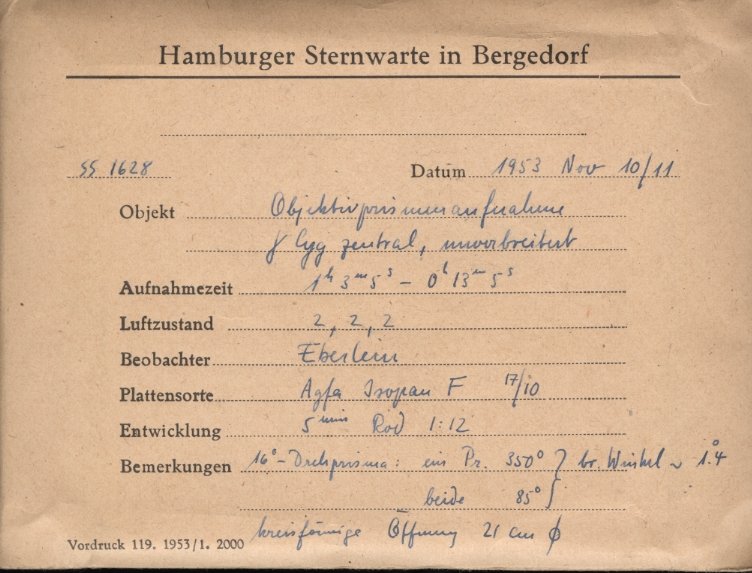 Hamburger Sternwarte in Bergedorf
SS 1628 Datum 1953 Nov 10/11
Objekt Objektivprismenaufnahme
γ Cyg zentral, unverbreitert
Aufnahmezeit 1ʰ 3ᵐ 5ˢ – 0ʰ 13ᵐ 5ˢ
Luftzustand 2, 2, 2
Beobachter Eberlein
Plattensorte Agfa Isopan F 17/10
Entwicklung 5 min Rod 1:12
Bemerkungen 16°-Drehprisma: ein Pr. 350° } br. Winkel ~ 1°.4
beide 85°
kreisförmige Öffnung 21 cm ϕ
Vordruck 119. 1953/1. 2000